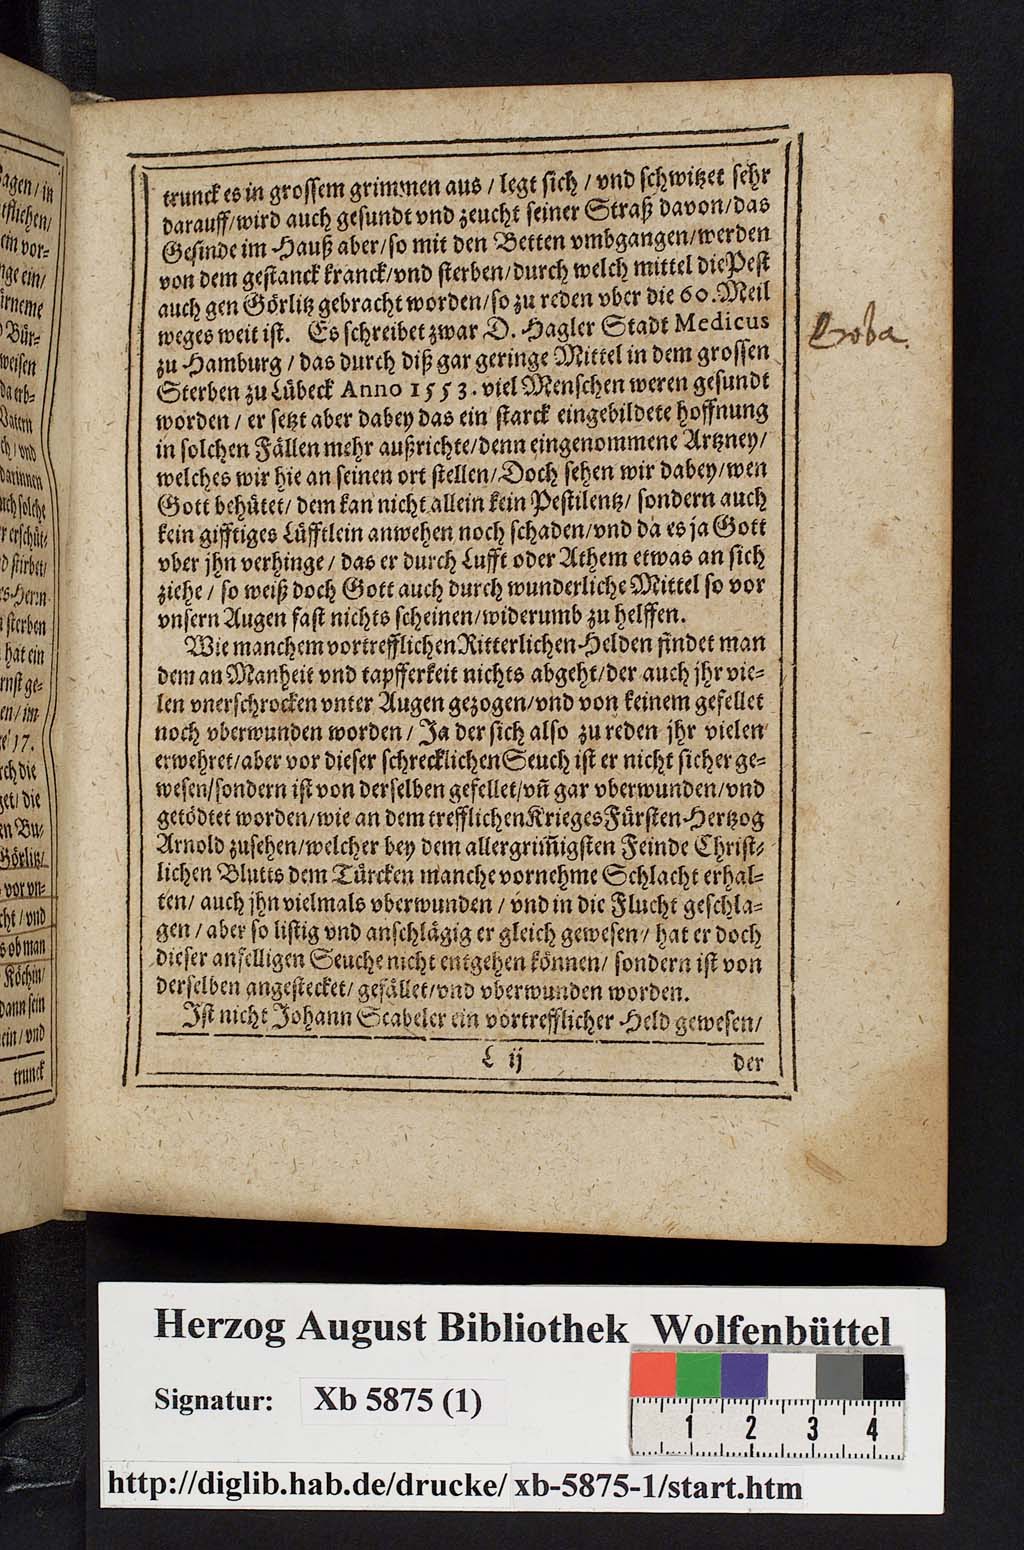 agen / in
ein vor-
nge ein/
ürneme
Bür-
weisen
da erb-
Vatern
ch/ vnd
darinnen
uch solche
r erschüt-
d stirbet/
es Herrn
sterben
hat ein
rnst ge-
en/ im
17.
rch die
get/ die
en Bu-
Görlitz/
vor vn-
cht / vnd
s ob man
Köchin/
dann sein
ein/ vnd
trunck
trunck es in grossem grimmen aus / legt sich / vnd schwitzet sehr
darauff/ wird auch gesundt vnd zeucht seiner Straß davon/ das
Gesinde im Hauß aber/ so mit den Betten vmbgangen/ werden
von dem gestanck kranck/ vnd sterben/ durch welch mittel die Pest
auch gen Görlitz gebracht worden/ so zu reden vber die 60. Meil
weges weit ist. Es schreibet zwar D. Hagler Stadt Medicus
zu Hamburg / das durch diß gar geringe Mittel in dem grossen
Sterben zu Lübeck Anno 1553. viel Menschen weren gesundt
worden / er setzt aber dabey das ein starck eingebildete hoffnung
in solchen Fällen mehr außrichte/ denn eingenommene Artzney/
welches wir hie an seinen ort stellen/ Doch sehen wir dabey/ wen
Gott behütet/ dem kan nicht allein kein Pestilentz/ sondern auch
kein gifftiges Lüfftlein anwehen noch schaden/ vnd da es ja Gott
vber jhn verhinge / das er durch Lufft oder Athem etwas an sich
ziehe / so weiß doch Gott auch durch wunderliche Mittel so vor
vnsern Augen fast nichts scheinen/ widerumb zu helffen.
Wie manchem vortrefflichen Ritterlichen Helden findet man
dem an Manheit vnd tapfferkeit nichts abgeht/ der auch jhr vie-
len vnerschrocken vnter Augen gezogen/ vnd von keinem gefellet
noch vberwunden worden / Ja der sich also zu reden jhr vielen
erwehret/ aber vor dieser schrecklichen Seuch ist er nicht sicher ge-
wesen/ sondern ist von derselben gefellet/ vñ gar vberwunden/ vnd
getödtet worden/ wie an dem trefflichen Krieges Fürsten Hertzog
Arnold zusehen/ welcher bey dem allergrim̃igsten Feinde Christ-
lichen Blutts dem Türcken manche vornehme Schlacht erhal-
ten/ auch jhn vielmals vberwunden / vnd in die Flucht geschla-
gen / aber so listig vnd anschlägig er gleich gewesen / hat er doch
dieser anfelligen Seuche nicht entgehen können/ sondern ist von
derselben angestecket/ gefället/ vnd vberwunden worden.
Ist nicht Johann Scabeler ein vortrefflicher Held gewesen/
L ij
der
Herzog August Bibliothek Wolfenbüttel
Signatur: Xb 5875 (1)
1 2 3 4
http://diglib.hab.de/drucke/xb-5875-1/start.htm